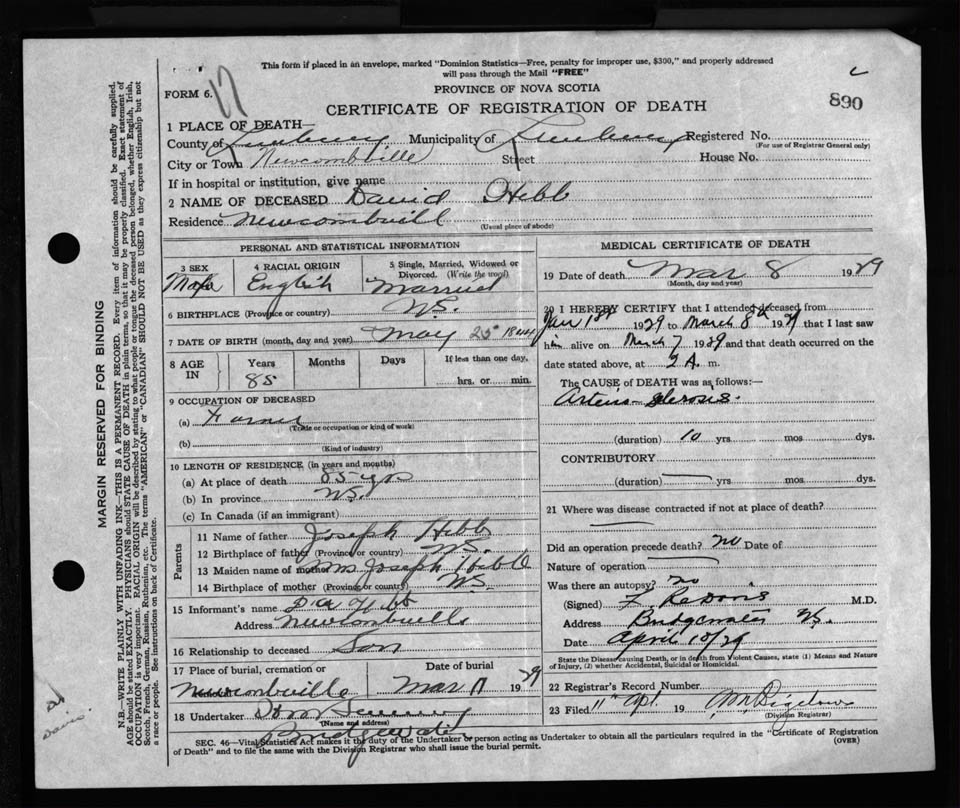 This form if placed in an envelope, marked "Dominion Statistics—Free, penalty for improper use, $300," and properly addressed
will pass through the Mail "FREE"
FORM 6.
17
PROVINCE OF NOVA SCOTIA
CERTIFICATE OF REGISTRATION OF DEATH
890
1 PLACE OF DEATH—
County of Lunenburg Municipality of Lunenburg Registered No.
(For use of Registrar General only)
City or Town Newcombville Street House No.
If in hospital or institution, give name
2 NAME OF DECEASED David Hebb
Residence Newcombvill
(Usual place of abode)
PERSONAL AND STATISTICAL INFORMATION
3 SEX
Male
4 RACIAL ORIGIN
English
5 Single, Married, Widowed or
Divorced. (Write the word)
Married
6 BIRTHPLACE (Province or country) N.S.
7 DATE OF BIRTH (month, day and year) May 25 1844
8 AGE
IN
Years
85
Months
Days
If less than one day,
hrs. or min.
9 OCCUPATION OF DECEASED
(a) Farmer
(Trade or occupation or kind of work)
(b)
(Kind of industry)
10 LENGTH OF RESIDENCE (in years and months)
(a) At place of death 85 yrs
(b) In province N.S.
(c) In Canada (if an immigrant)
Parents
11 Name of father Joseph Hebb
12 Birthplace of father (Province or country) N.S.
13 Maiden name of mother Mrs Joseph Hebb
14 Birthplace of mother (Province or country) N.S.
15 Informant's name Hebb
Address Newcombville
16 Relationship to deceased Son
17 Place of burial, cremation or
Newcombville
Date of burial
Mar 11 1929
18 Undertaker
(Name and address)
Bridgewater
MEDICAL CERTIFICATE OF DEATH
19 Date of death Mar 8 1929
(Month, day and year)
20 I HEREBY CERTIFY that I attended deceased from
Jan 1st 1929 to March 8th 1929 that I last saw
him alive on March 7 1929 and that death occurred on the
date stated above, at 2 A. m.
The CAUSE OF DEATH was as follows:—
Arterio-sclerosis.
(duration) 10 yrs. mos dys.
CONTRIBUTORY
(duration) yrs. mos. dys.
21 Where was disease contracted if not at place of death?
Did an operation precede death? no Date of
Nature of operation
Was there an autopsy? no
(Signed) M.D.
Address Bridgewater N.S.
Date April 10/29
State the Disease causing Death, or in death from Violent Causes, state (1) Means and Nature
of Injury, (2) whether Accidental, Suicidal or Homicidal.
22 Registrar's Record Number
23 Filed 11" Apl. 19
(Division Registrar)
SEC. 46—Vital Statistics Act makes it the duty of the Undertaker or person acting as Undertaker to obtain all the particulars required in the "Certificate of Registration
of Death" and to file the same with the Division Registrar who shall issue the burial permit.
(OVER)
MARGIN RESERVED FOR BINDING
N.B.—WRITE PLAINLY WITH UNFADING INK—THIS IS A PERMANENT RECORD. Every item of information should be carefully supplied.
AGE should be stated EXACTLY. PHYSICIANS should STATE CAUSE OF DEATH in plain terms, so that it may be properly classified. Exact statement of
OCCUPATION is very important. RACIAL ORIGIN will be described by stating to what people or tongue the deceased person belonged, whether English, Irish,
Scotch, French, German, Russian, Ruthenian, etc. The terms "AMERICAN" or "CANADIAN" SHOULD NOT BE USED as they express citizenship but not
a race or people. See instructions on back of Certificate.